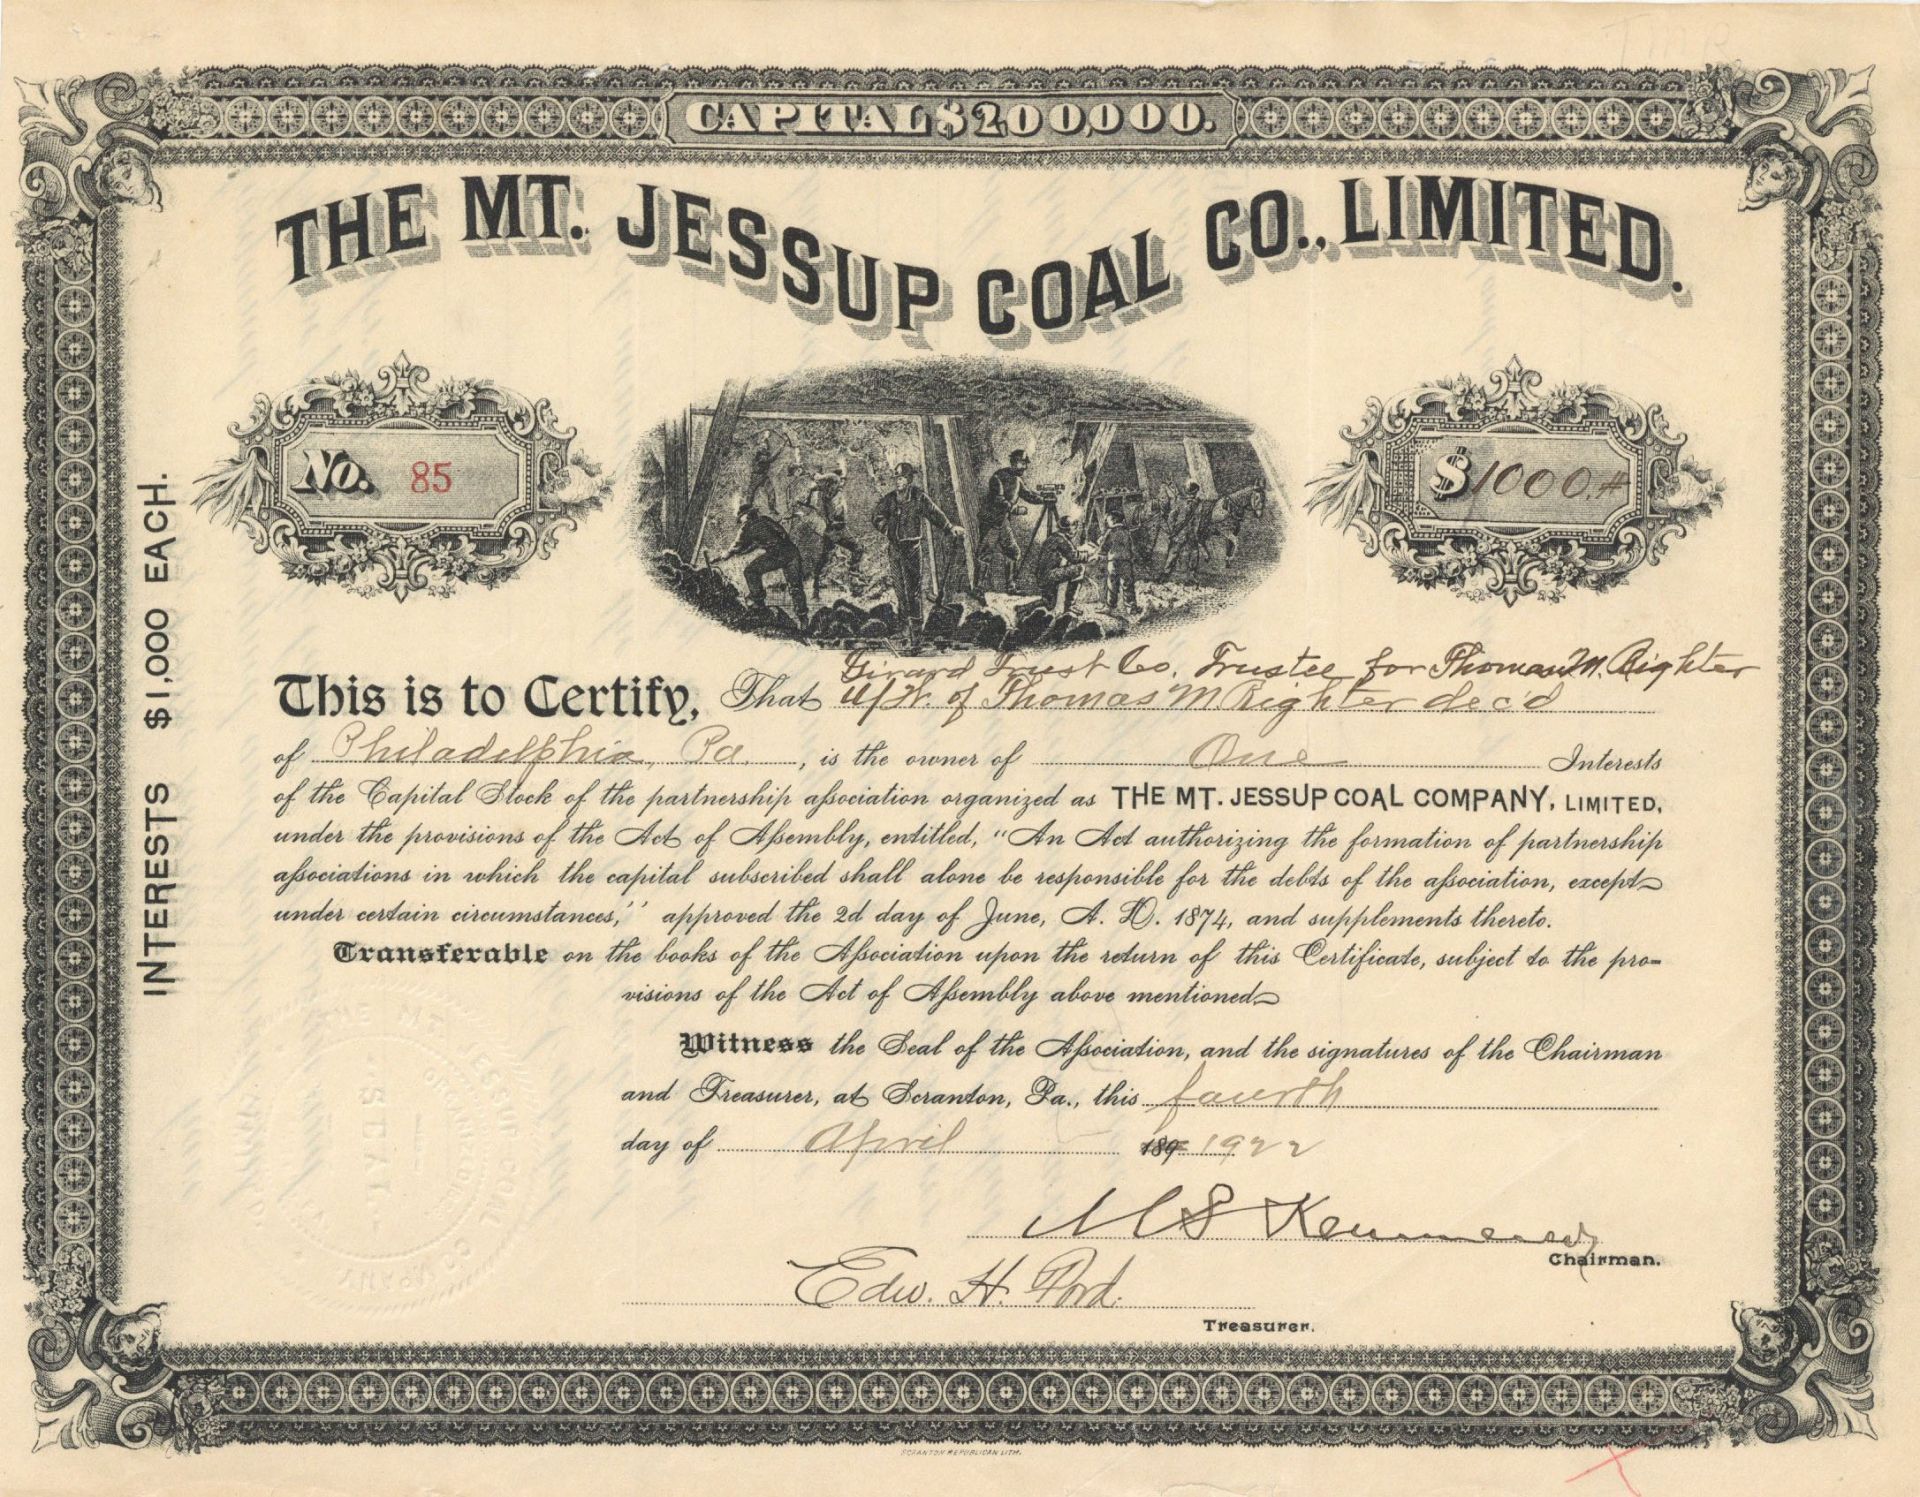 CAPITAL $200,000.
THE MT. JESSUP COAL CO., LIMITED.
No. 85
$1000.#
INTERESTS $1,000 EACH.
Girard Trust Co. Trustee for Thomas M. Righter
This is to Certify, That u/w. of Thomas M Righter dec'd
of Philadelphia, Pa. , is the owner of One Interests
of the Capital Stock of the partnership association organized as THE MT. JESSUP COAL COMPANY, LIMITED,
under the provisions of the Act of Assembly, entitled, "An Act authorizing the formation of partnership
associations in which the capital subscribed shall alone be responsible for the debts of the association, except
under certain circumstances," approved the 2d day of June, A. D. 1874, and supplements thereto.
Transferable on the books of the Association upon the return of this Certificate, subject to the pro=
visions of the Act of Assembly above mentioned
Witness the Seal of the Association, and the signatures of the Chairman
and Treasurer, at Scranton, Pa., this fourth
day of April 189 1922
M S Kemmerer
Chairman.
Edw. H. Ford.
Treasurer.
THE MT. JESSUP COAL COMPANY
SEAL
SCRANTON REPUBLICAN LITH.